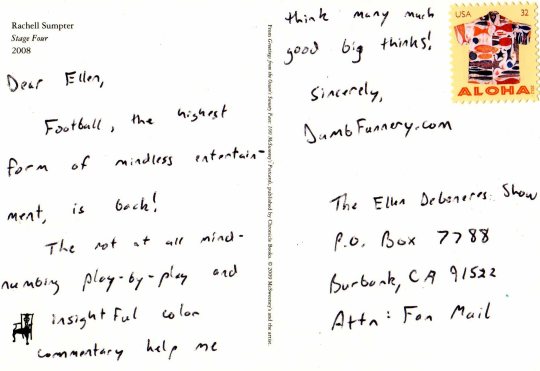 Rachell Sumpter
Stage Four
2008
Dear Ellen,
Football, the highest
form of mindless entertain-
ment, is back!
The not at all mind-
numbing play-by-play and
insightful color
commentary help me
From Greetings from the Ocean's Sweaty Face: 100 McSweeney's Postcards, published by Chronicle Books. © 2009 McSweeney's and the artist.
think many much
good big thinks!
Sincerely,
DumbFunnery.com
USA 32
ALOHA
The Ellen Degeneres Show
P.O. Box 7788
Burbank, CA 91522
Attn: Fan Mail